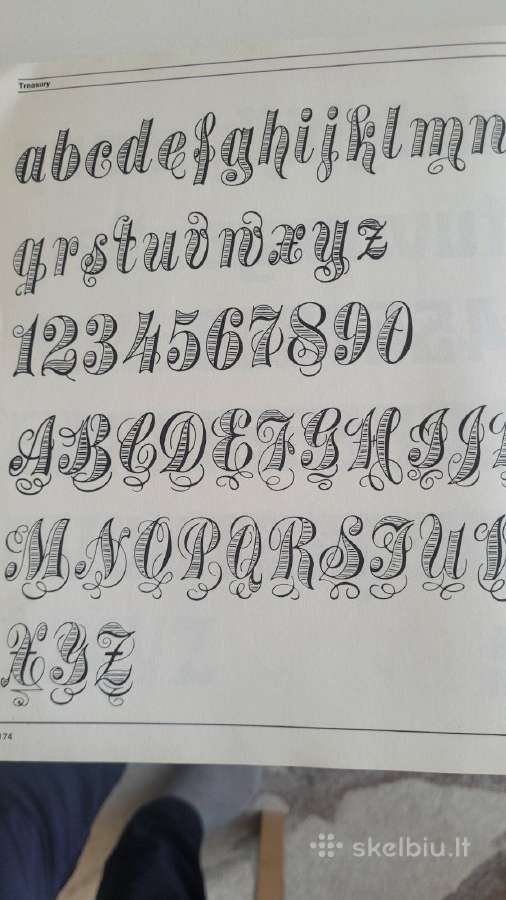 Treasury
abcdefghijklmn
qrstuvwxyz
1234567890
ABCDEFGHIJ
MNOPQRSTUV
XYZ
174
skelbiu.lt